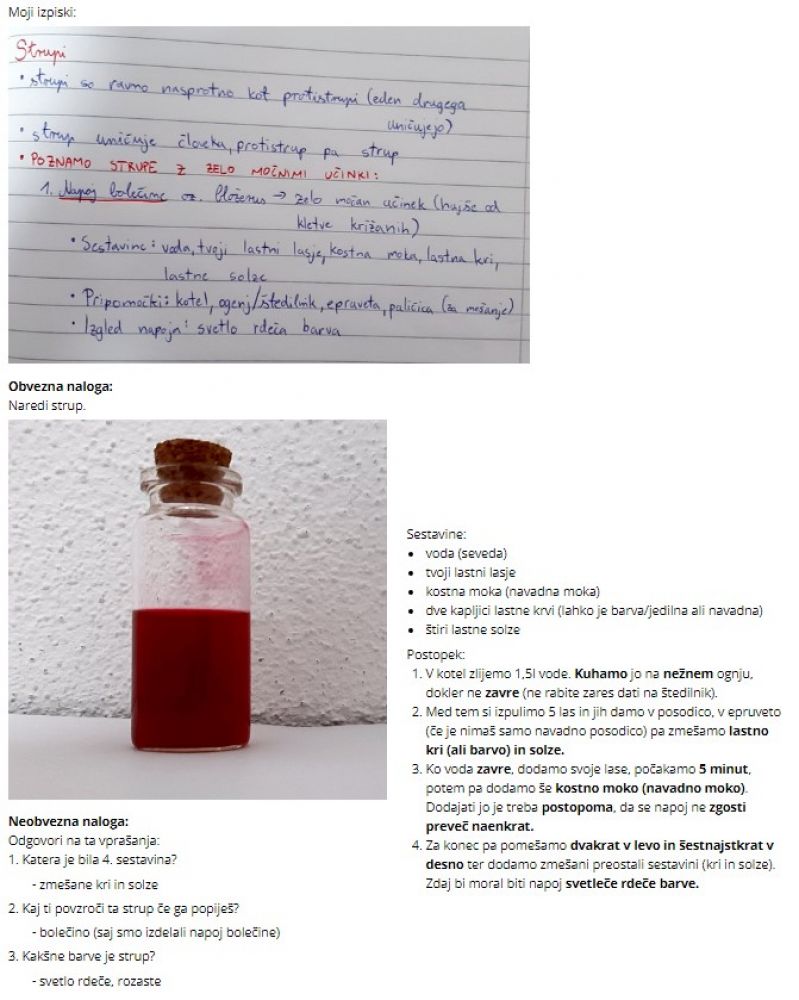 Moji izpiski:
Strupi
• strupi so ravno nasprotno kot protistrupi (eden drugega
uničujejo)
• strup uničuje človeka, protistrup pa strup
• POZNAMO STRUPE Z ZELO MOČNIMI UČINKI:
1. Napoj bolečine oz. → zelo močan učinek (hujše od
kletve križanih)
• Sestavine: voda, tvoji lastni lasje, kostna moka, lastna kri,
lastne solze
• Pripomočki: kotel, ogenj/štedilnik, epruveta, paličica (za mešanje)
• Izgled napoja: svetlo rdeča barva
Obvezna naloga:
Naredi strup.
Sestavine:
• voda (seveda)
• tvoji lastni lasje
• kostna moka (navadna moka)
• dve kapljici lastne krvi (lahko je barva/jedilna ali navadna)
• štiri lastne solze
Postopek:
1. V kotel zlijemo 1,5l vode. Kuhamo jo na nežnem ognju,
dokler ne zavre (ne rabite zares dati na štedilnik).
2. Med tem si izpulimo 5 las in jih damo v posodico, v epruveto
(če je nimaš samo navadno posodico) pa zmešamo lastno
kri (ali barvo) in solze.
3. Ko voda zavre, dodamo svoje lase, počakamo 5 minut,
potem pa dodamo še kostno moko (navadno moko).
Dodajati jo je treba postopoma, da se napoj ne zgosti
preveč naenkrat.
4. Za konec pa pomešamo dvakrat v levo in šestnajstkrat v
desno ter dodamo zmešani preostali sestavini (kri in solze).
Zdaj bi moral biti napoj svetleče rdeče barve.
Neobvezna naloga:
Odgovori na ta vprašanja:
1. Katera je bila 4. sestavina?
- zmešane kri in solze
2. Kaj ti povzroči ta strup če ga popiješ?
- bolečino (saj smo izdelali napoj bolečine)
3. Kakšne barve je strup?
- svetlo rdeče, rozaste